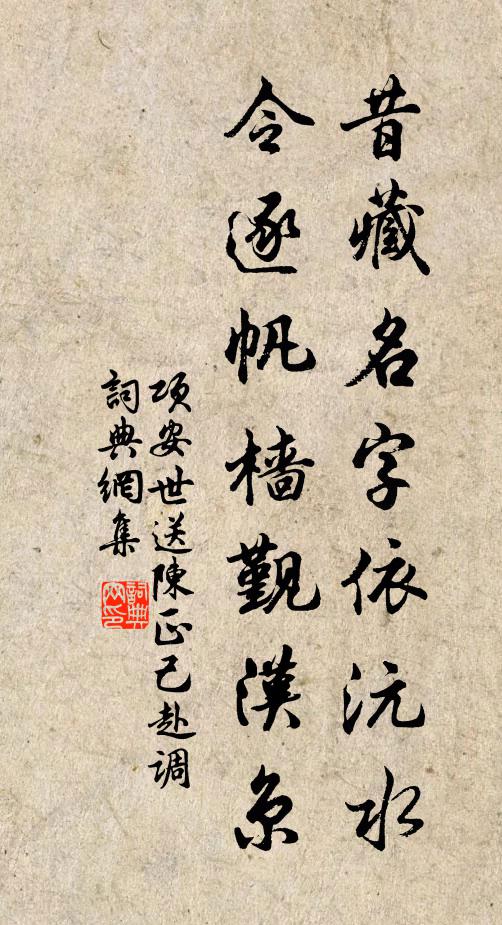 昔藏名字依沅水
令逐帆樯觐漢京
项安世送陳正己赴调
詞典網集
詞典网印